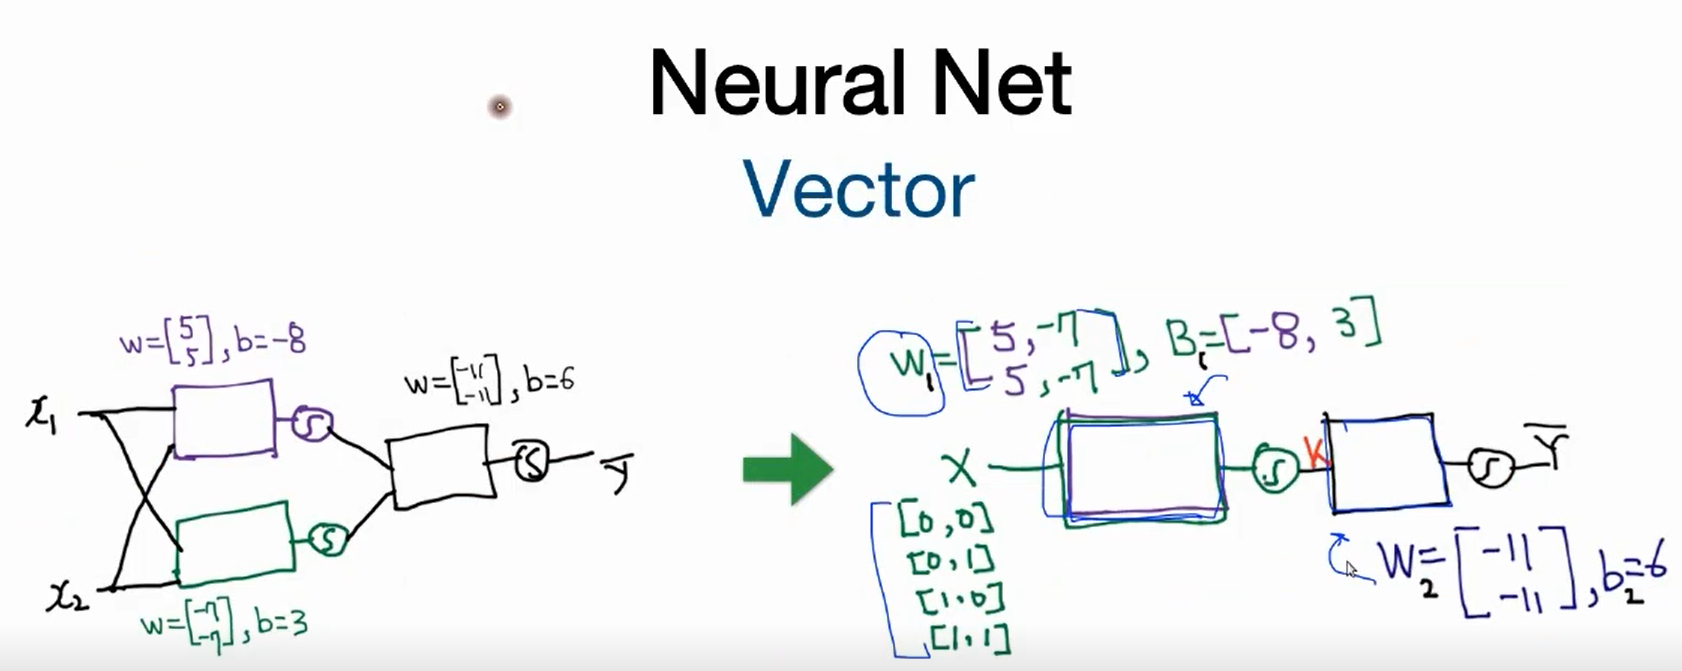 Neural Net
Vector
w=[5 5], b=-8
w=[-11 -11], b=6
x1
x2
S
S
S
ȳ
w=[-7 -7], b=3
W1=[5,-7 5,-7], B1=[-8, 3]
X
S
K
S
Ȳ
[0,0]
[0,1]
[1,0]
[1,1]
W2=[-11 -11], b2=6